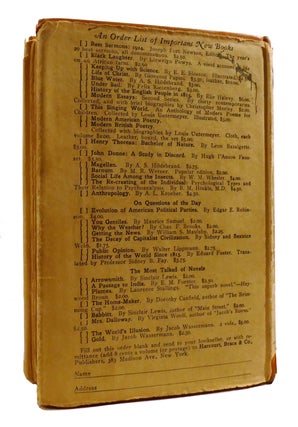 An Order List of Important New Books
[ ] Best Sermons: 1924. Joseph Fort Newton, Editor.
[ ] Black Laughter. By Llewelyn Powys. A year's
[ ] Keeping Up with Science. By E. E. Slosson. Illustrated.
[ ] Life of Christ. By Giovanni Papini.
[ ] Blue Water. By A. S. Hildebrand.
[ ] Under Sail. By Felix Riesenberg.
[ ] History of the English People in 1815. By Elie Halevy.
[ ] Modern Essays: Second Series. By thirty contemporaries.
Collected, and with brief biographies by Christopher Morley.
[ ] This Singing World. An Anthology of Modern Poems for
Children. Collected by Louis Untermeyer. Illustrated.
[ ] Modern American Poetry.
[ ] Modern British Poetry.
Collected with biographies by Louis Untermeyer. Cloth, each
[ ] Henry Thoreau: Bachelor of Nature. By Leon Bazalgette.
[ ] John Donne: A Study in Discord. By Hugh I'Anson Fausset.
[ ] Magellan. By A. S. Hildebrand. $2.75.
[ ] Barnum. By M. R. Werner. Popular edition.
[ ] Social Life Among the Insects. By W. M. Wheeler.
[ ] The Re-creating of the Individual: Psychological Types and
Their Relation to Psychoanalysis. By B. M. Hinkle, M.D.
[ ] Anthropology. By A. L. Kroeber.
On Questions of the Day
[ ] Evolution of American Political Parties. By Edgar E. Robinson.
[ ] You Gentiles. By Maurice Samuel.
[ ] Why the Weather? By Chas. F. Brooks.
[ ] Getting the News. By William S. Maulsby.
[ ] The Decay of Capitalist Civilization. By Sidney and Beatrice
Webb. $1.75.
[ ] Public Opinion. By Walter Lippmann.
[ ] History of the World Since 1815. By Edward Foster. Trans-
lated by Professor Sidney B. Fay.
The Most Talked of Novels
[ ] Arrowsmith. By Sinclair Lewis.
[ ] A Passage to India. By E. M. Forster.
[ ] Plumes. By Laurence Stallings. "This superb novel"—Hey-
wood Broun. $2.00.
[ ] The Home-Maker. By Dorothy Canfield, author of "The Brim-
ming Cup." $2.00.
[ ] Babbitt. By Sinclair Lewis, author of "Main Street."
[ ] Mrs. Dalloway. By Virginia Woolf, author of "Jacob's Room."
[ ] The World's Illusion. By Jacob Wassermann. 2 vols.,
[ ] Gold. By Jacob Wassermann.
Fill out this order blank and send to your bookseller, or with re-
mittance (add 8 cents a volume for postage) to Harcourt, Brace & Co.,
Publishers, 383 Madison Ave., New York
Name
Address